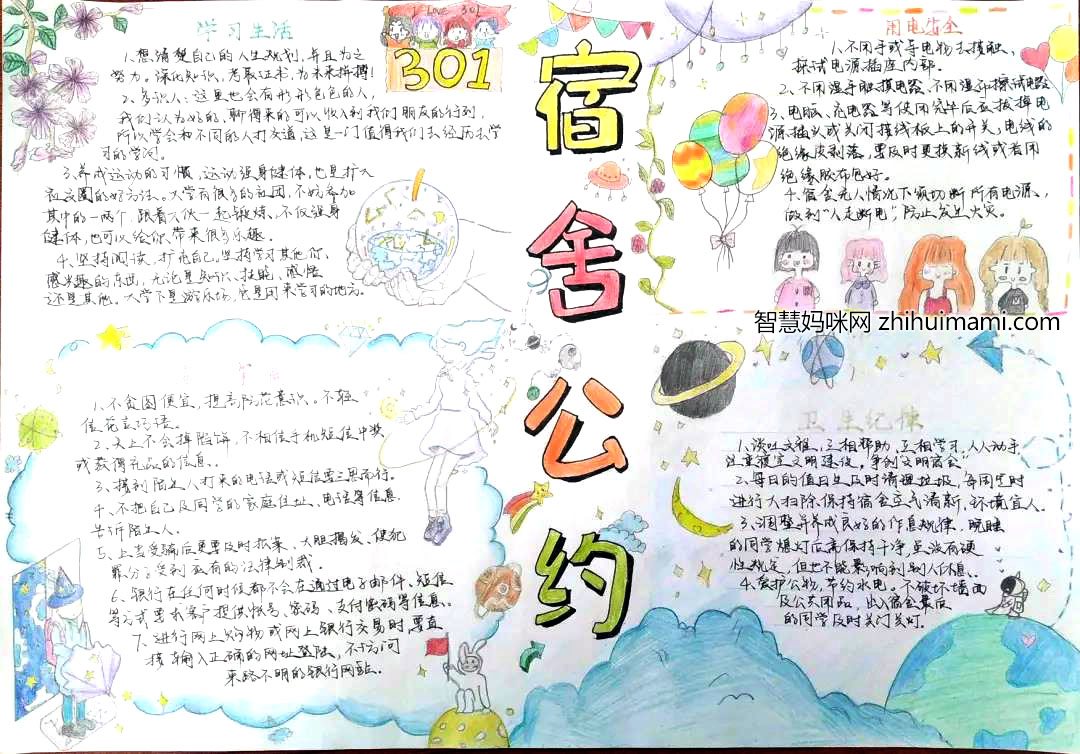 宿舍公约
学习生活
I LOVE 301
301
1.想清楚自己的人生规划,并且为之
努力。深化知识,考取证书,为未来拼搏!
2.多识人:这里也会有形形色色的人,
我们认为好的,聊得来的可以收入到我们朋友的行列,
所以学会和不同的人打交道,这是一门值得我们去经历去学
习的学问。
3.养成运动的习惯,运动强身健体,也是扩大
社交圈的好方法。大学有很多的社团,不妨参加
其中的一两个,跟着大伙一起锻炼,不仅强身
健体,也可以给你带来很多乐趣。
4.坚持阅读,扩充自己。坚持学习其他你
感兴趣的东西,无论是知识、技能、感悟
还是其他。大学不是游乐场,它是用来学习的地方。
用电安全
1.不用手或导电物去接触、
探试电源插座内部。
2.不用湿手触摸电器,不用湿布擦试电器
3.电脑、充电器等使用完毕后应拔掉电
源插头或关闭接线板上的开关,电线的
绝缘皮剥落,要及时更换新线或者用
绝缘胶布包好。
4.宿舍无人情况下须切断所有电源、
做到“人走断电”,防止发生火灾。
智慧妈咪网 zhihuimami.com
1.不贪图便宜,提高防范意识。不轻
信花言巧语。
2.天上不会掉陷饼,不相信手机短信中奖
或获得礼品的信息。
3、接到陌生人打来的电话或短信要三思而行。
4、不把自己及同学的家庭住址、电话等信息
告诉陌生人。
5、上当受骗后更要及时报案、大胆揭发,使犯
罪分子受到应有的法律制裁。
6、银行在任何时候都不会在通过电子邮件、短信
等方式要求客户提供帐号、密码、支付密码等信息。
7、进行网上购物或网上银行交易时,要直
接输入正确的网址登陆,不访问
来路不明的银行网站。
卫生纪律
1.谈吐文雅,互相帮助,互相学习,人人动手
注重寝室文明建设,争创文明宿舍
2.每日的值日生及时清理垃圾,每周定时
进行大扫除保持宿舍空气清新,环境宜人.
3、调整并养成良好的作息规律,晚睡
的同学熄灯后需保持干净,虽没有硬
性规定,但也不能影响到别人休息。
4.爱护公物,节约水电。不破坏墙面
及公共用品,出入宿舍最后
的同学及时关门关灯.